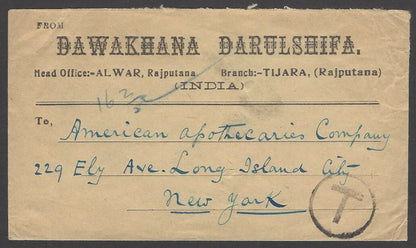 FROM
DAWAKHANA DARULSHIFA.
Head Office:-ALWAR, Rajputana Branch:-TIJARA, (Rajputana)
(INDIA)
To,
American Apothecaries Company
229 Ely Ave. Long Island City
New York
T